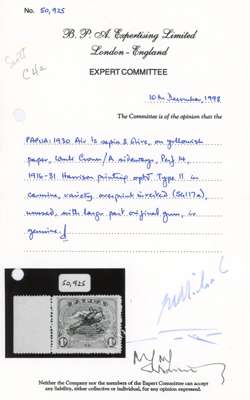 No. 50,925
B. P. A. Expertising Limited
London - England
Scott
C4a
EXPERT COMMITTEE
10th December, 1998
The Committee is of the opinion that the
PAPUA: 1930 Air 1/- sepia & olive, on yellowish
paper, Wmk Crown/A sideways, Perf 14,
1916-31 Harrison printing optd Type 11 in
carmine, variety overprint inverted (SG117a),
unused, with large part original gum, is
genuine.
50,925
Neither the Company nor the members of the Expert Committee can accept
any liability, either collective or individual, for any opinion expressed.